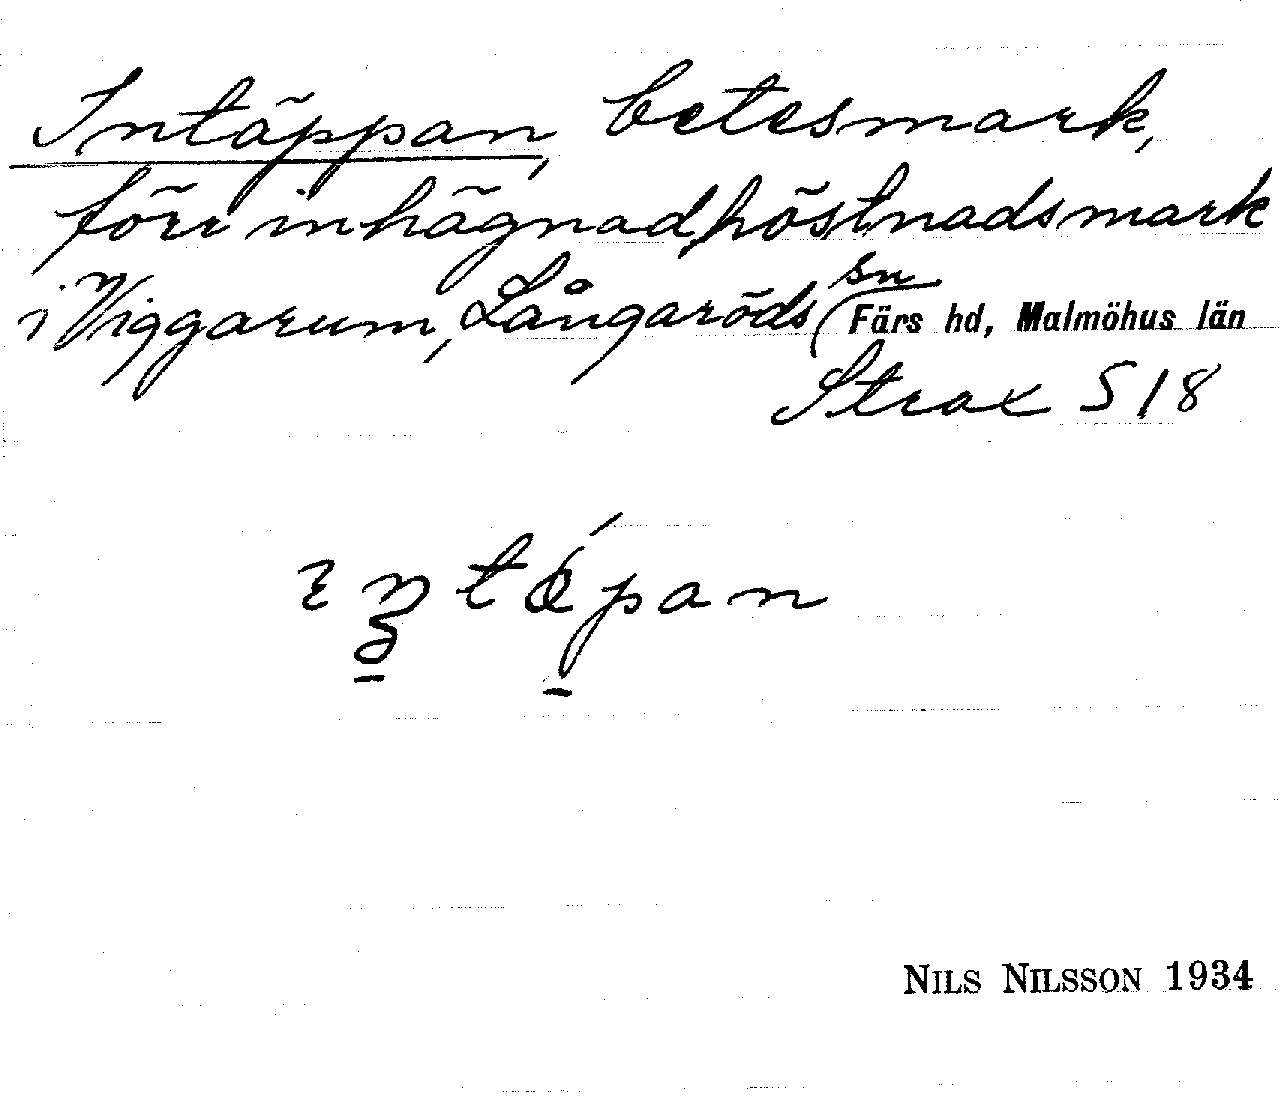 Intäppan, betesmark,
förr inhägnad höstnadsmark
i Viggarum, Långaröds sn
Färs hd, Malmöhus län
Strax S 18
NILS NILSSON 1934